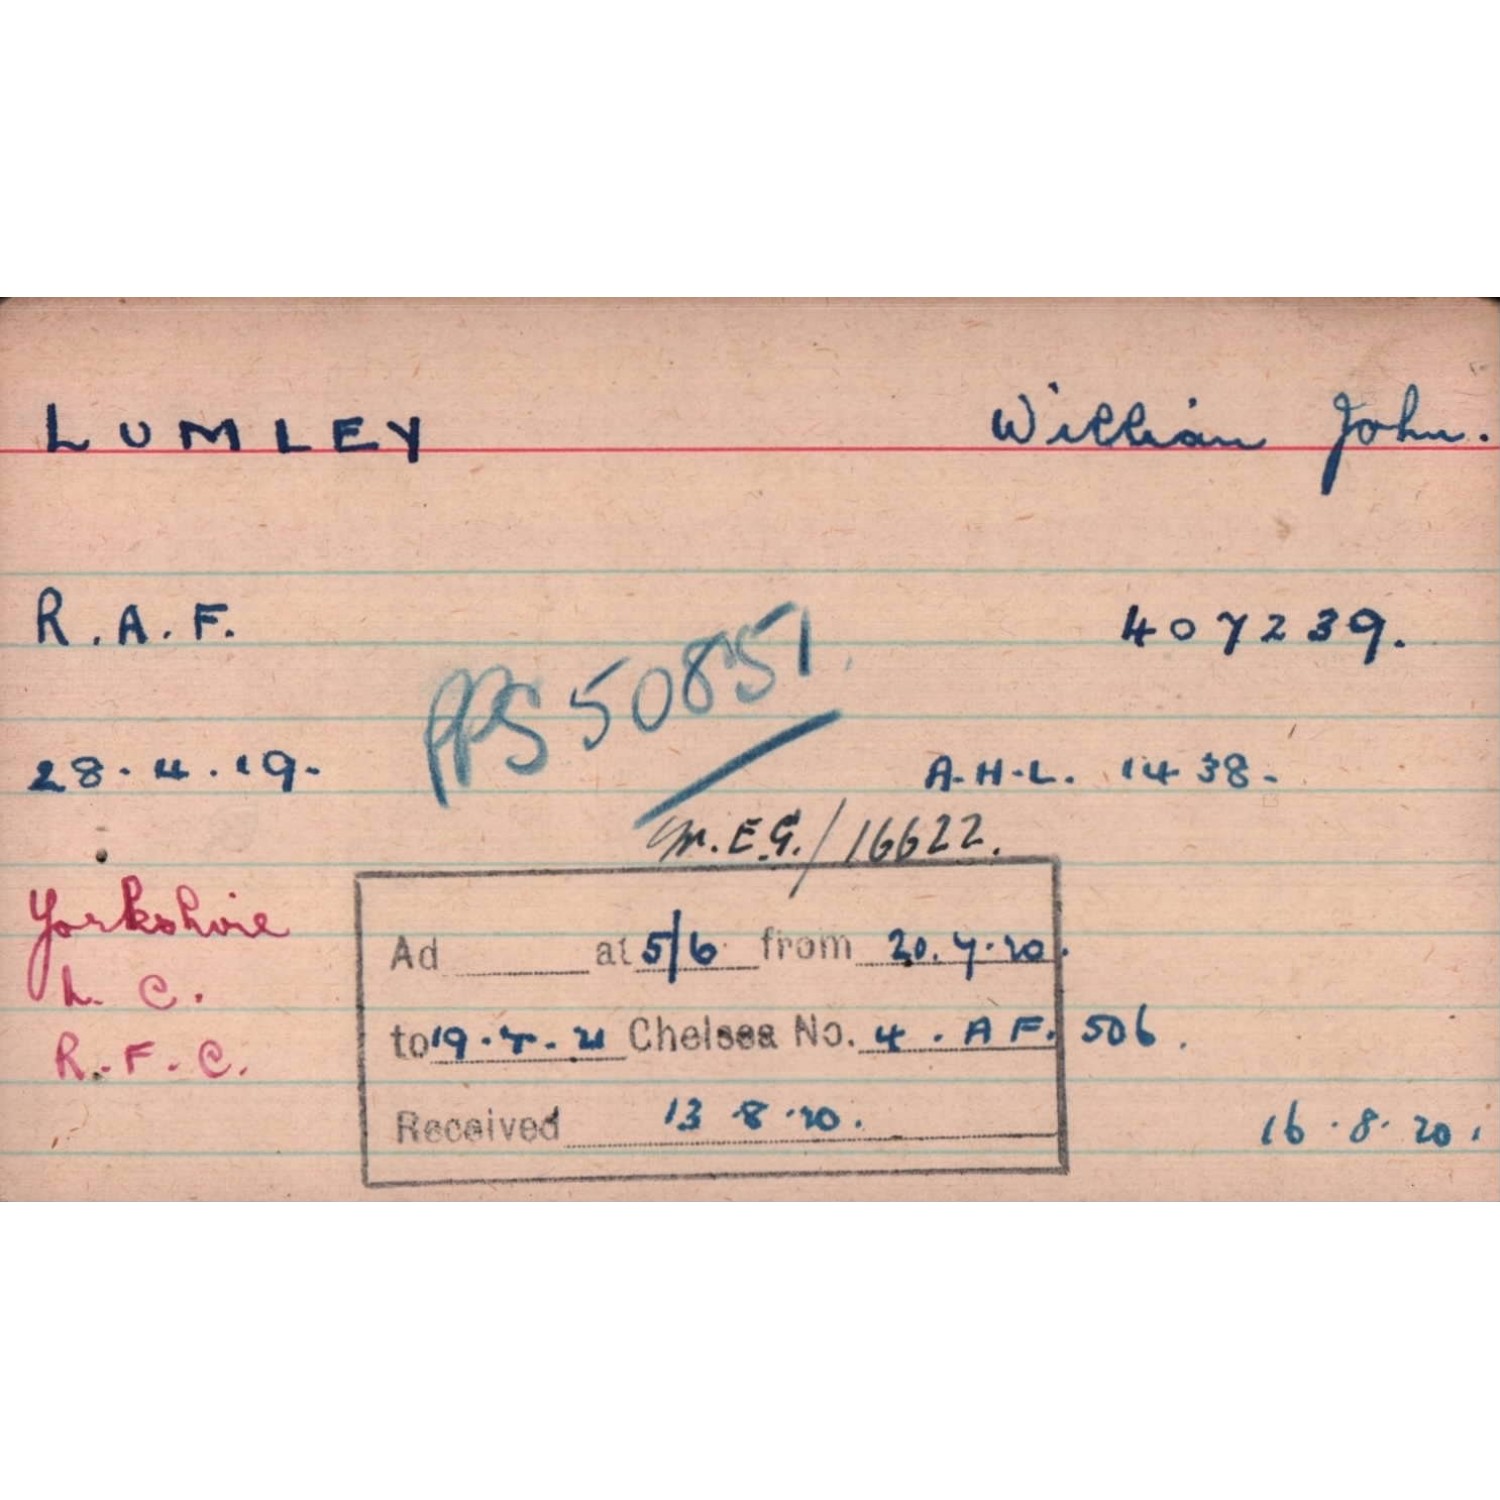 LUMLEY William John.
R.A.F. 407239.
PPS 50851.
28.4.19. A.H.L. 1438.
M.E.G./16622.
Yorkshire
L.C.
R.F.C.
Ad at 5/6 from 20.7.20.
to 19.7.21 Chelsea No. 4.AF.506.
Received 13 8.20.
16.8.20.